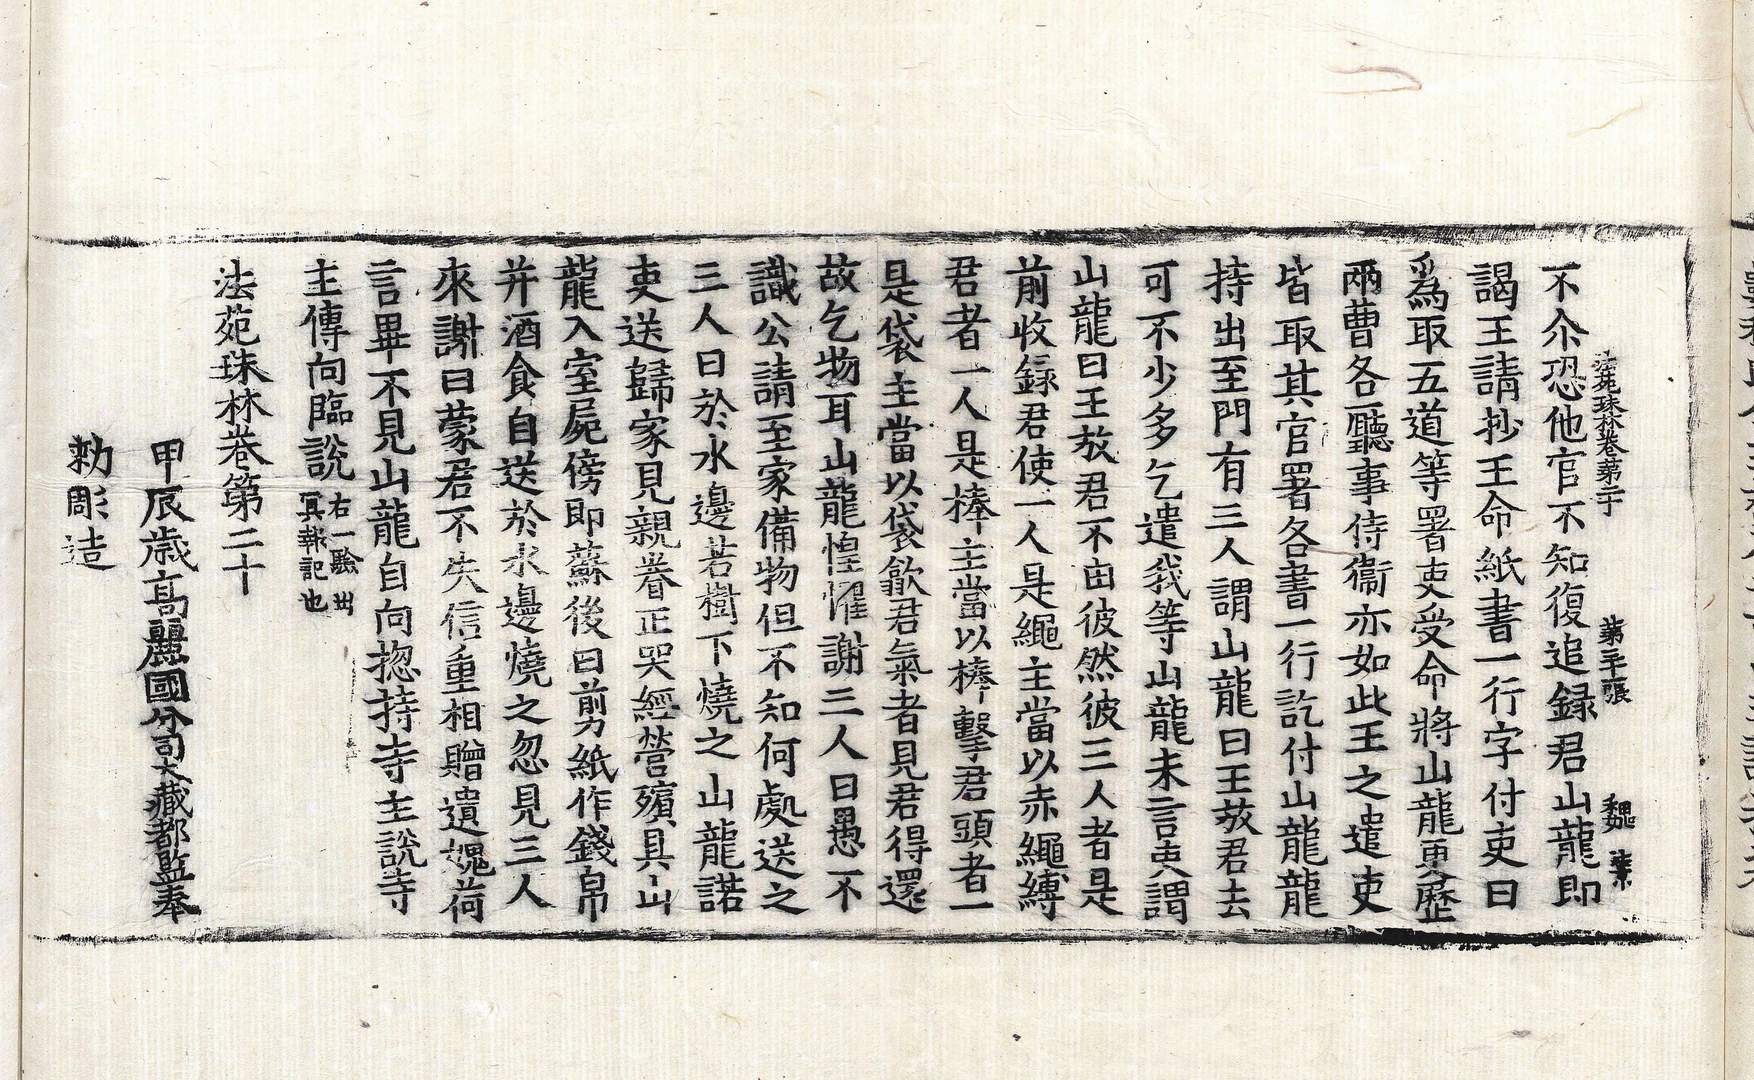 法苑珠林卷第二十 第三十張 魏 葉
不尒恐他官不知復追録君山龍即
謁王請抄王命紙書一行字付吏曰
爲取五道等署吏受命將山龍更歷
兩曹各廳事侍衛亦如此王之遣吏
皆取其官署各書一行訖付山龍龍
持出至門有三人謂山龍曰王放君去
可不少多乞遣我等山龍未言吏謂
山龍曰王放君不由彼然彼三人者是
前收録君使一人是繩主當以赤繩縛
君者一人是棒主當以棒擊君頭者一
是袋主當以袋歙君氣者見君得還
故乞物耳山龍惶懼謝三人曰愚不
識公請至家備物但不知何處送之
三人曰於水邊若樹下燒之山龍諾
吏送歸家見親眷正哭經營殯具山
龍入室屍傍即蘇後曰剪紙作錢帛
并酒食自送於水邊燒之忽見三人
來謝曰蒙君不失信重相贈遺媿荷
言畢不見山龍自向揔持寺主說寺
主傳向臨說右一驗出冥報記也
法苑珠林卷第二十
甲辰歳高麗國分司大藏都監奉
勑彫造